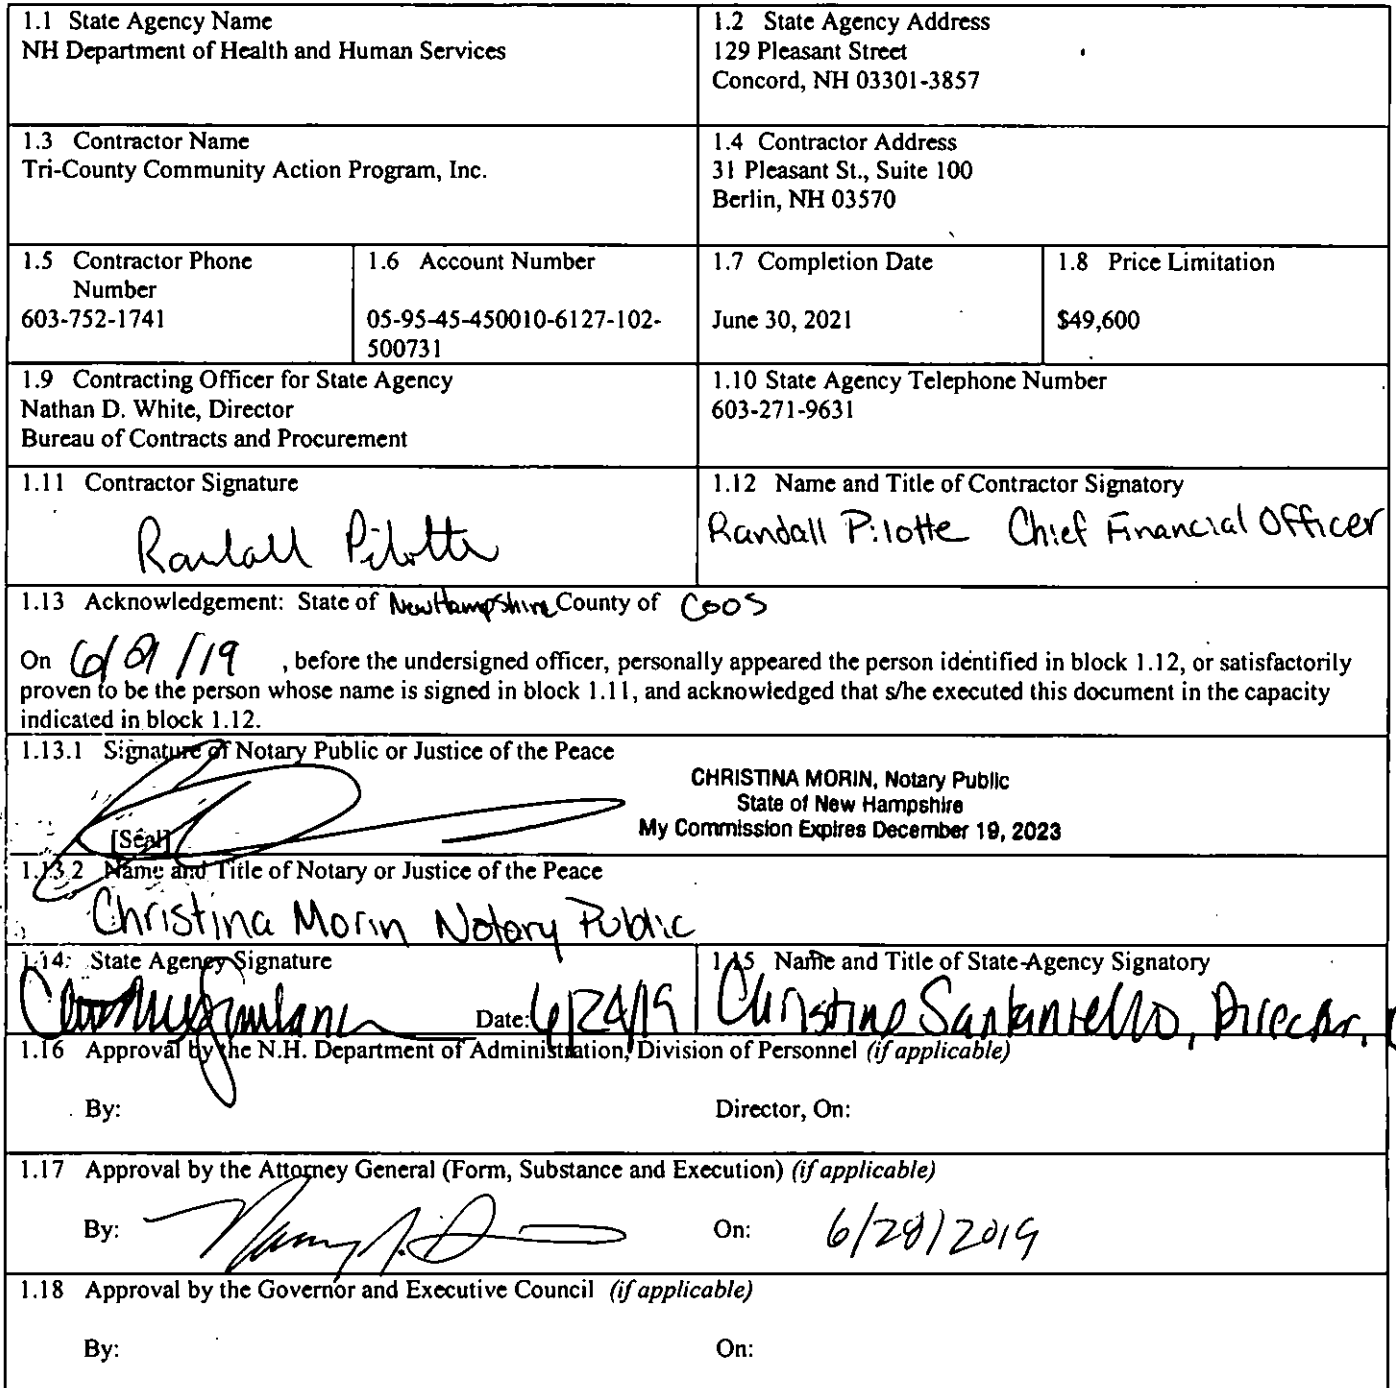 1.1 State Agency Name
NH Department of Health and Human Services
1.2 State Agency Address
129 Pleasant Street
Concord, NH 03301-3857
1.3 Contractor Name
Tri-County Community Action Program, Inc.
1.4 Contractor Address
31 Pleasant St., Suite 100
Berlin, NH 03570
1.5 Contractor Phone
Number
603-752-1741
1.6 Account Number
05-95-45-450010-6127-102-
500731
1.7 Completion Date
June 30, 2021
1.8 Price Limitation
$49,600
1.9 Contracting Officer for State Agency
Nathan D. White, Director
Bureau of Contracts and Procurement
1.10 State Agency Telephone Number
603-271-9631
1.11 Contractor Signature
Randall Pilotte
1.12 Name and Title of Contractor Signatory
Randall Pilotte Chief Financial Officer
1.13 Acknowledgement: State of New Hampshire County of Coos
On 6/ /19 , before the undersigned officer, personally appeared the person identified in block 1.12, or satisfactorily
proven to be the person whose name is signed in block 1.11, and acknowledged that s/he executed this document in the capacity
indicated in block 1.12.
1.13.1 Signature of Notary Public or Justice of the Peace
[Seal]
CHRISTINA MORIN, Notary Public
State of New Hampshire
My Commission Expires December 19, 2023
1.13.2 Name and Title of Notary or Justice of the Peace
Christina Morin Notary Public
1.14. State Agency Signature
Date: 6/24/19
1.15 Name and Title of State Agency Signatory
Christine Santaniello, Director,
1.16 Approval by the N.H. Department of Administration, Division of Personnel (if applicable)
By:
Director, On:
1.17 Approval by the Attorney General (Form, Substance and Execution) (if applicable)
By:
On: 6/28/2019
1.18 Approval by the Governor and Executive Council (if applicable)
By:
On: